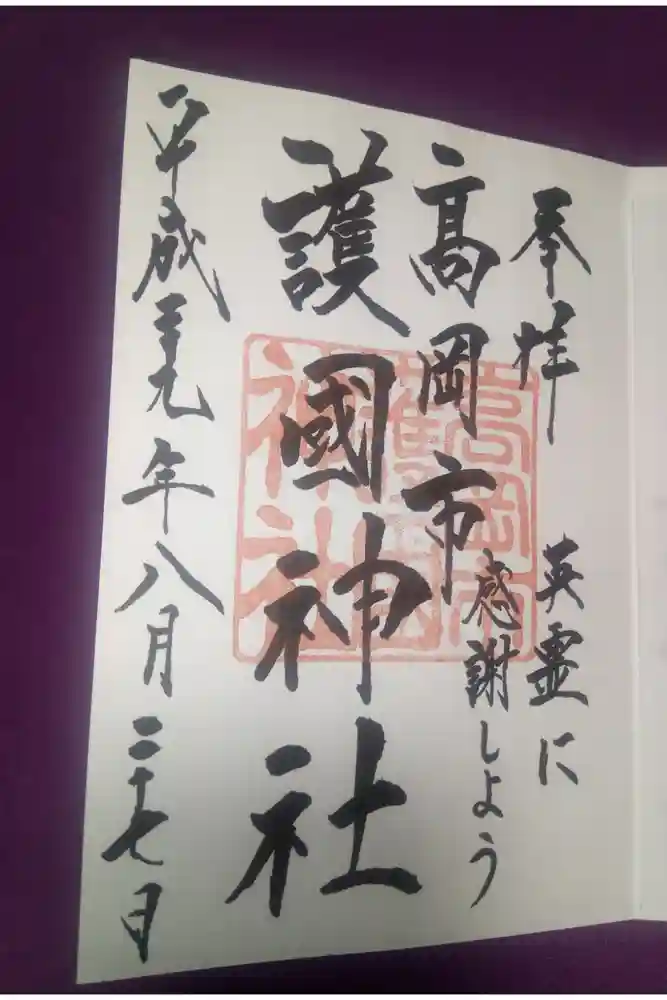 奉拝
英霊に
感謝しよう
高岡市
護國神社
平成二十九年八月二十七日
高岡市
護國
神社